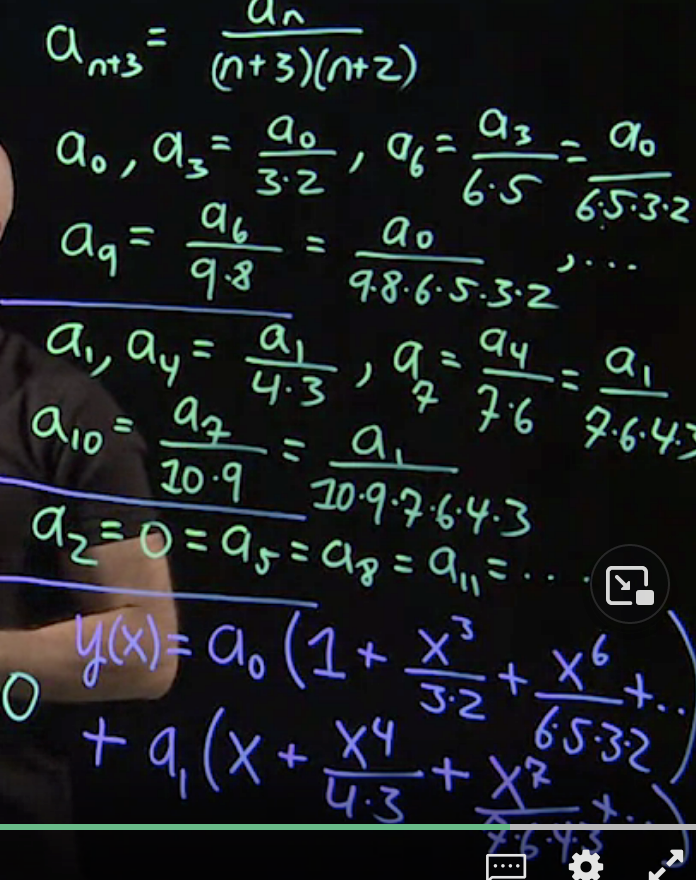 aₙ₊₃ = aₙ / (n+3)(n+2)
a₀, a₃ = a₀ / 3·2 , a₆ = a₃ / 6·5 = a₀ / 6·5·3·2
a₉ = a₆ / 9·8 = a₀ / 9·8·6·5·3·2 , ...
a₁, a₄ = a₁ / 4·3 , a₇ = a₄ / 7·6 = a₁ / 7·6·4·3
a₁₀ = a₇ / 10·9 = a₁ / 10·9·7·6·4·3
a₂ = 0 = a₅ = a₈ = a₁₁ = ...
y(x) = a₀ (1 + x³ / 3·2 + x⁶ / 6·5·3·2 + ...)
0
+ a₁ (x + x⁴ / 4·3 + x⁷ / 7·6·4·3 + ...)